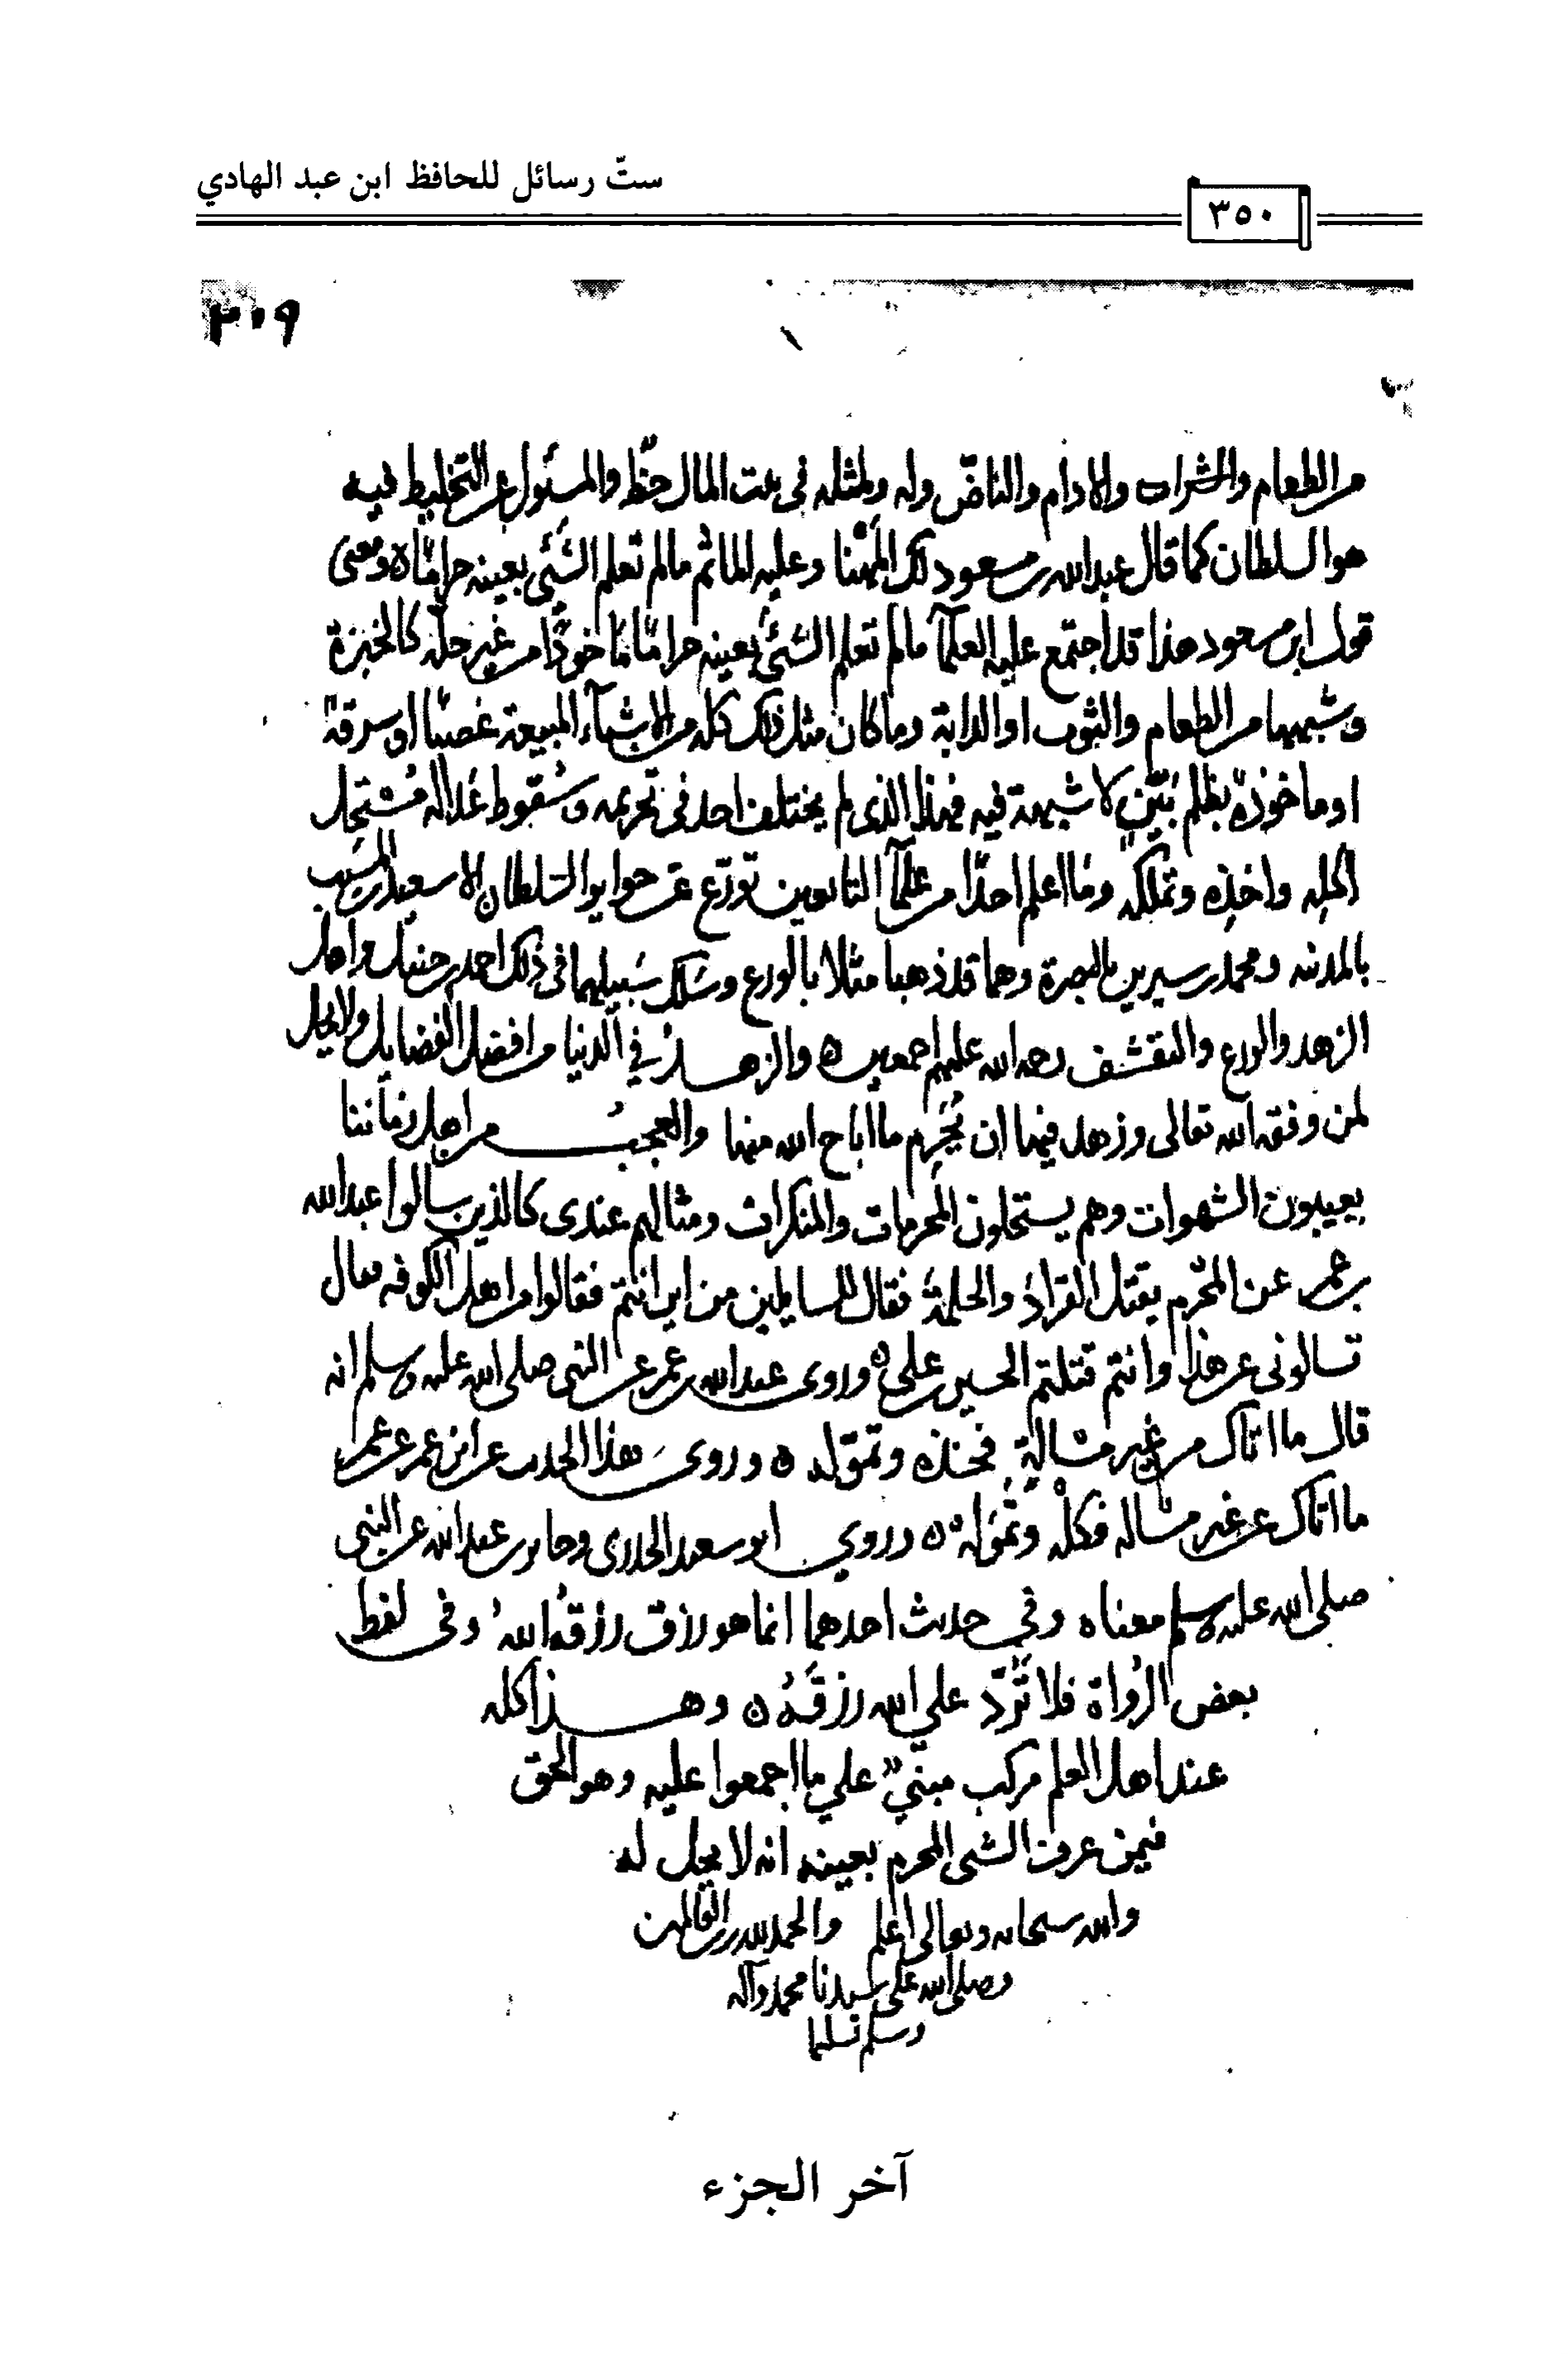 ستّ رسائل للحافظ ابن عبد الهادي
٣٥٠
٢٠٩
من الطعام والشراب والادام والناضّ وله ولمثله في بيت المال حظّ والمسئول عن التخليط فيه
هو السلطان كما قال عبد الله بن مسعود لك المهنا وعليه الماثم ما لم تعلم الشيء بعينه حراماً ومعنى
قول ابن مسعود هذا قد اجتمع عليه العلمآ ما لم تعلم الشيء بعينه حراماً ماخوذا من غير حله كالخبزة
وشبهها من الطعام والثوب او الدابة وما كان مثل ذلك كله من الاشيآء المبيعة غصبًا او سرقة
او ماخوذة بظلم بيّن لا شبهة فيه فهذا الذي لم يختلف احد في تحريمه وسقوط عدالة مستحل
اكله واخذه وتملكه وما اعلم احدًا من علمآ التابعين تورّع عن جوايز السلطان الا سعيد بن المسيب
بالمدينه ومحمد بن سيرين بالبصرة وهما قد ذهبا مثلا بالورع وسلك سبيلهما في ذلك احمد بن حنبل واهل
الزهد والورع والتقشف رحمه الله عليهم اجمعين ه والزهد في الدنيا من افضل الفضايل ولا يحل
لمن وفقه الله تعالى وزهد فيها ان يحرم ما اباح الله منها والعجب من اهل زماننا
يعيبون الشهوات وهم يستحلون المحرمات والمنكرات ومثالهم عندي كالذين سالوا عبد الله
بن عمر عن المحرم يقتل القراد والحلمة فقال للسايلين من اين انتم فقالوا من اهل الكوفه فقال
تسالوني عن هذا وانتم قتلتم الحسين بن علي ه وروى عبد الله بن عمر عن النبي صلى الله عليه وسلم انه
قال ما اتاك من غير مسالة فخذه وتموّله ه وروى هذا الحديث عن ابن عمر عن عمر
ما اتاك عن غير مساله فكله وتموله ه وروي ابو سعيد الخدري وجابر بن عبد الله عن النبي
صلى الله عليه وسلم معناه وفي حديث احدهما انما هو رزق رزقه الله وفي لفظ
بعض الرواة فلا تردّ علي الله رزقه ه وهذا كله
عند اهل العلم مركب مبني علي ما اجمعوا عليه وهو الحق
فيمن عرف الشي المحرم بعينه انه لا يحل له
والله سبحانه وتعالى اعلم والحمد لله رب العالمين
وصلى الله على سيدنا محمد وآله
وسلم تسليما
آخر الجزء